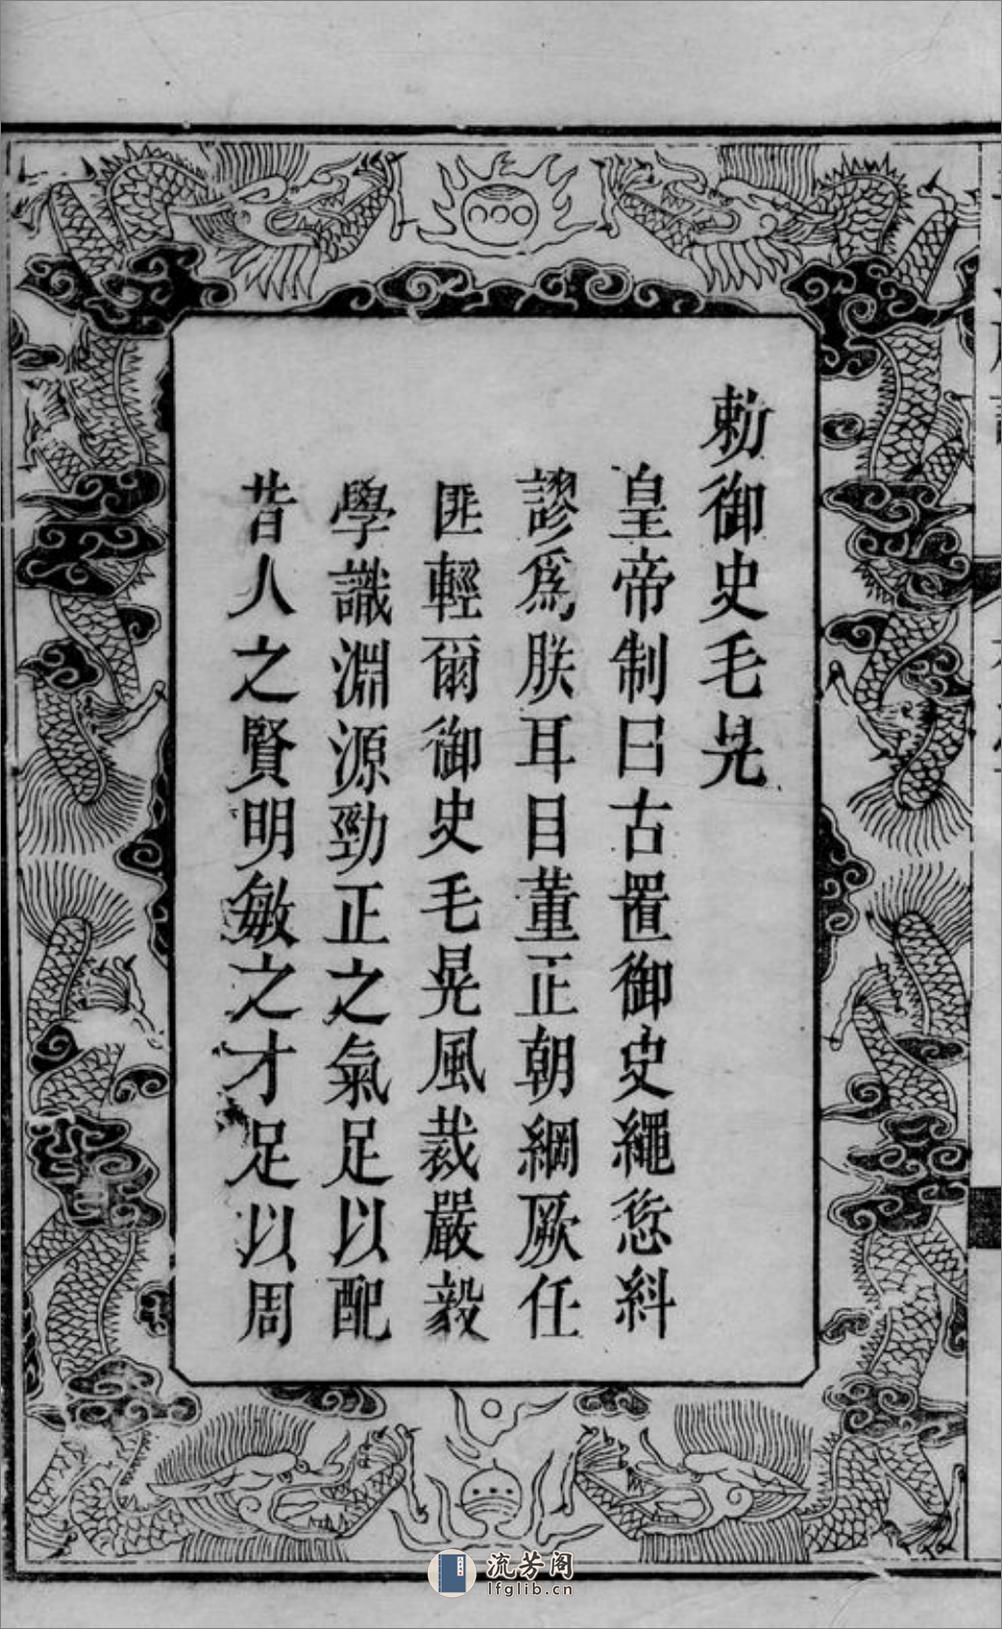 勅御史毛晃
皇帝制曰古置御史繩愆糾
謬為朕耳目董正朝綱厥任
匪輕爾御史毛晃風裁嚴毅
學識淵源勁正之氣足以配
昔人之賢明敏之才足以周
流芳阁
lfglib.cn